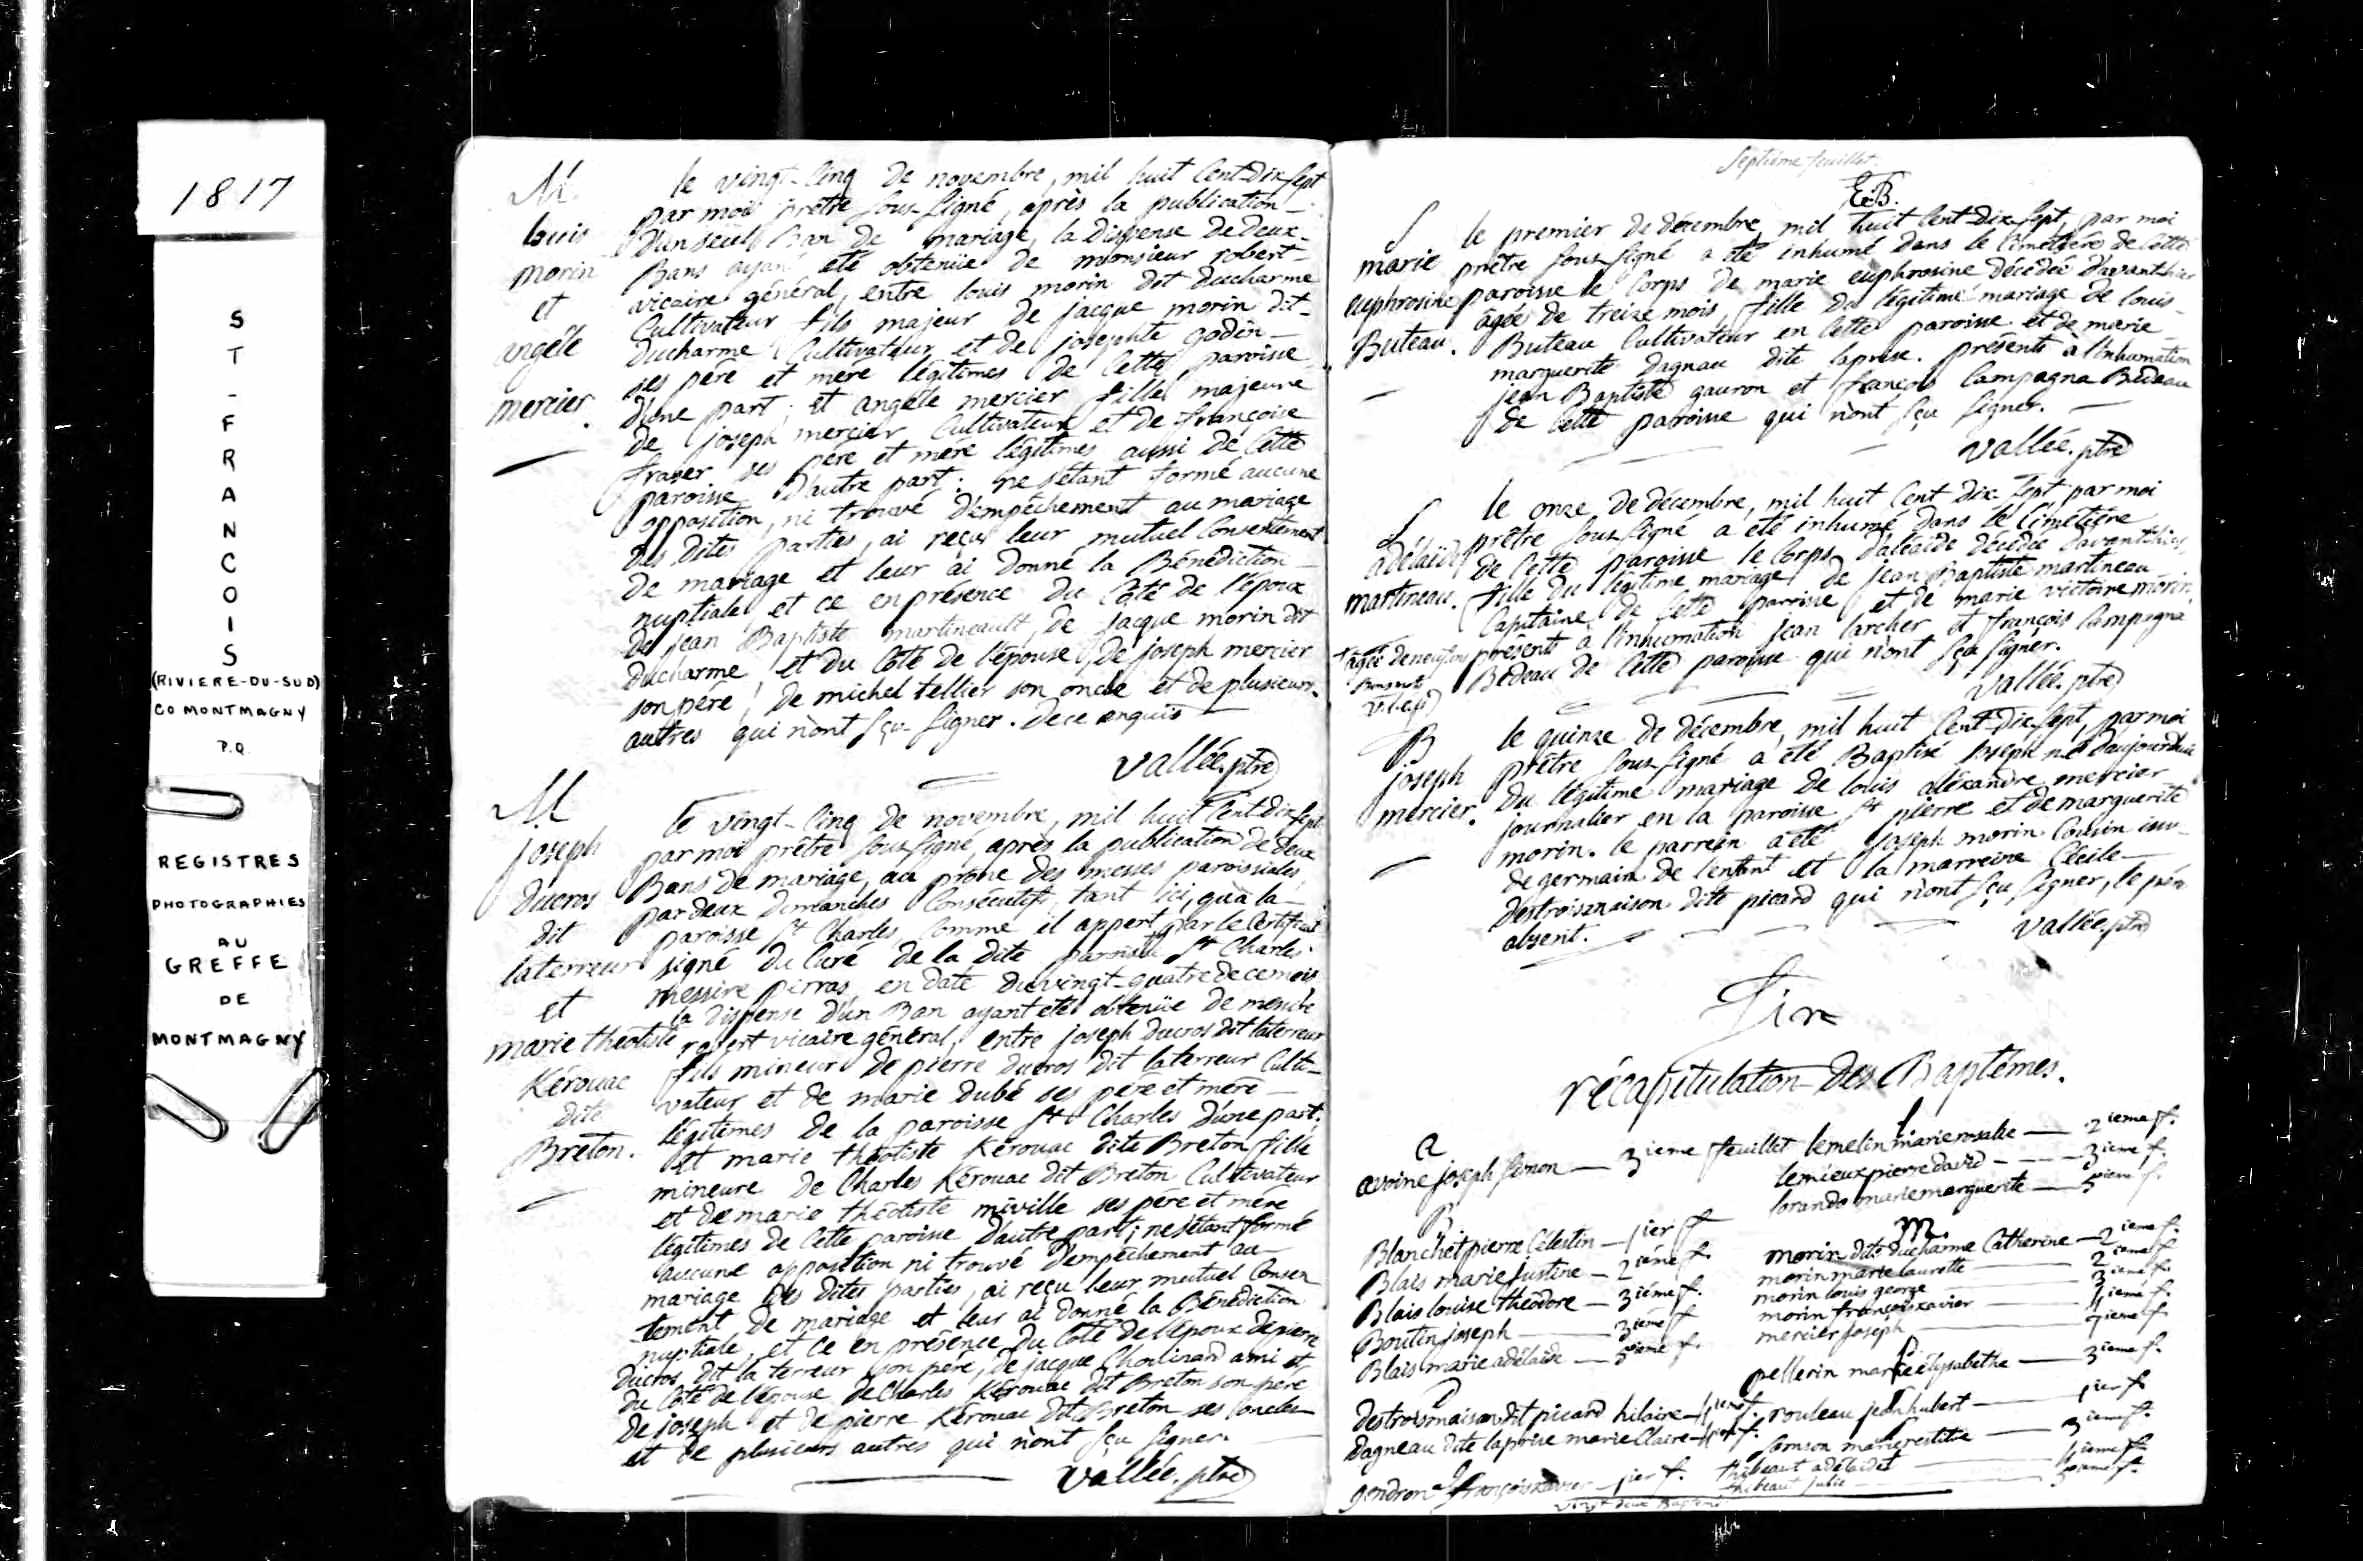 1817
ST-FRANCOIS
(RIVIERE-DU-SUD)
CO MONTMAGNY
P.Q.
REGISTRES
PHOTOGRAPHIES
AU
GREFFE
DE
MONTMAGNY
M.
louis
morin
et
angéle
mercier.
le vingt-cinq de novembre, mil huit cent dix sept
par moi prêtre sous signé, après la publication
d'un seul Ban de mariage, la dispense de deux
Bans ayant été obtenüe de monsieur robert
vicaire général, entre louis morin dit ducharme
Cultivateur fils majeur de jacque morin dit
ducharme Cultivateur et de josephte godin
ses pére et mere légitimes de cette paroisse
d'une part; et angéle mercier fille majeure
de joseph mercier Cultivateur et de françoise
fraser ses pére et mére légitimes aussi de cette
paroisse d'autre part: ne s'étant formé aucune
opposition, ni trouvé d'empêchement au mariage
des dites parties, ai reçu leur mutuel Consentement
de mariage et leur ai donné la Bénédiction
nuptiale et ce en présence du Côté de l'époux
de jean Baptiste martineault, de jacque morin dit
ducharme, et du Côté de l'épouse, de joseph mercier
son pére, de michel tellier son oncle et de plusieurs
autres qui n'ont sçu signer. de ce enquis
vallée. ptre
M
joseph
ducros
dit
laterreur
et
marie théotiste
Kérouac
dite
Breton.
le vingt-cinq de novembre, mil huit cent dix sept
par moi prêtre sous signé, après la publication de deux
Bans de mariage, au prône des messes paroissiales
par deux dimanches Consécutifs, tant ici, qu'à la
paroisse St Charles Comme il appert par le Certificat
signé du Curé de la dite paroisse St Charles
messire perras, en date du vingt-quatre de ce mois
la dispense d'un Ban ayant été obtenüe de messire
robert vicaire général, entre joseph ducros dit laterreur
fils mineur de pierre ducros dit laterreur Culti-
vateur et de marie dubé ses pére et mére
légitimes de la paroisse St Charles d'une part;
et marie théotiste Kérouac dite Breton fille
mineure de Charles Kérouac dit Breton Cultivateur
et de marie théotiste miville ses pére et mére
légitimes de cette paroisse d'autre part; ne s'étant formé
aucune opposition ni trouvé d'empêchement au
mariage des dites parties, ai reçu leur mutuel Consen
-tement de mariage et leur ai donné la Bénédiction
nuptiale, et ce en présence du Côté de l'époux de pierre
ducros dit la terreur son pére, de jacque Chouinard ami et
du Côté de l'épouse de Charles Kérouac dit Breton son pére
de joseph et de pierre Kérouac dit Breton ses oncles
et de plusieurs autres qui n'ont sçu signer.
vallée. ptre
Septième feuillet.
E.B.
S
marie
euphrosine
Buteau.
le premier de décembre, mil huit cent dix sept, par moi
prêtre sous signé a été inhumé dans le Cimetiére de cette
paroisse le Corps de marie euphrosine décédée d'avant hier
âgée de treize mois, fille du légitime mariage de louis
Buteau Cultivateur en cette paroisse et de marie
marguerite dagnau dite laprise. présents à l'inhumation
jean Baptiste gauron et françois Campagna Bedeau
de cette paroisse qui n'ont sçu signer.
vallée. ptre
S
adélaïde
martineau.
le onze de décembre, mil huit cent dix sept, par moi
prêtre sous signé a été inhumé dans le Cimétiére
de cette paroisse le Corps d'aléaïde décédée d'avant hier,
fille du légitime mariage de jean Baptiste martineau
Capitaine de cette paroisse et de marie victoire morin
présents à l'inhumation jean larcher et françois Campagna
Bedeau de cette paroisse qui n'ont sçu signer.
vallée. ptre
B
joseph
mercier.
le quinze de décembre, mil huit cent dix sept, par moi
prêtre sous signé a été Baptisé joseph né d'aujourdhui
du légitime mariage de louis aléxandre mercier
journalier en la paroisse St pierre et de marguerite
morin. le parrein a été joseph morin Cousin issu
de germain de l'enfant et la marreine Cécile
destroismaison dite picard qui n'ont sçu signer, le pére
absent.
vallée. ptre
Fin
récapitulation des Baptêmes.
a
avoine joseph simon — 3ieme feuillet
B
Blanchet pierre Célestin — 1ier ft
Blais marie justine — 2iéme f.
Blais louise théodore — 3iéme f.
Boutin joseph — 3iéme f
Blais marie adélaïde — 5iéme f.
D
destroismaison dit picard hilaire — f.
dagneau dite laprise marie Claire — f.
g
gendron françois xavier — 1ier f.
l
lemelin marie rosalie — 2ieme f.
lemieux pierre david — 3ieme f.
lorando marie marguerite — 5ieme f.
m
morin dite ducharme Catherine — 2ieme f.
morin marie laurette — 2ieme f
morin louis george — 3ieme f.
morin françois xavier — f.
mercier joseph — 7ieme f.
p
pellerin marie élysabethe — 3ieme f.
rouleau jean hubert — 1ier f.
samson marie restitue — 3ieme f.
thibeaut adélaïde — f.
thibeaut julie — f.
vingt deux Baptêmes